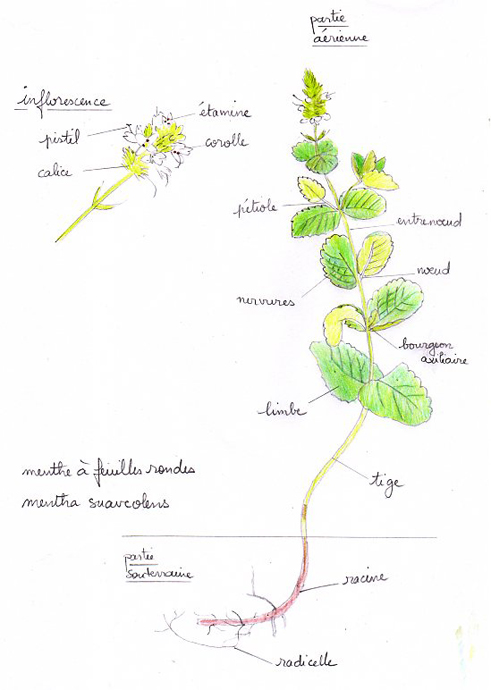 partie
aérienne
inflorescence
étamine
pistil
corolle
calice
pétiole
entrenœud
nœud
nervures
bourgeon
axiliaire
limbe
menthe à feuilles rondes
mentha suaveolens
tige
partie
souterraine
racine
radicelle